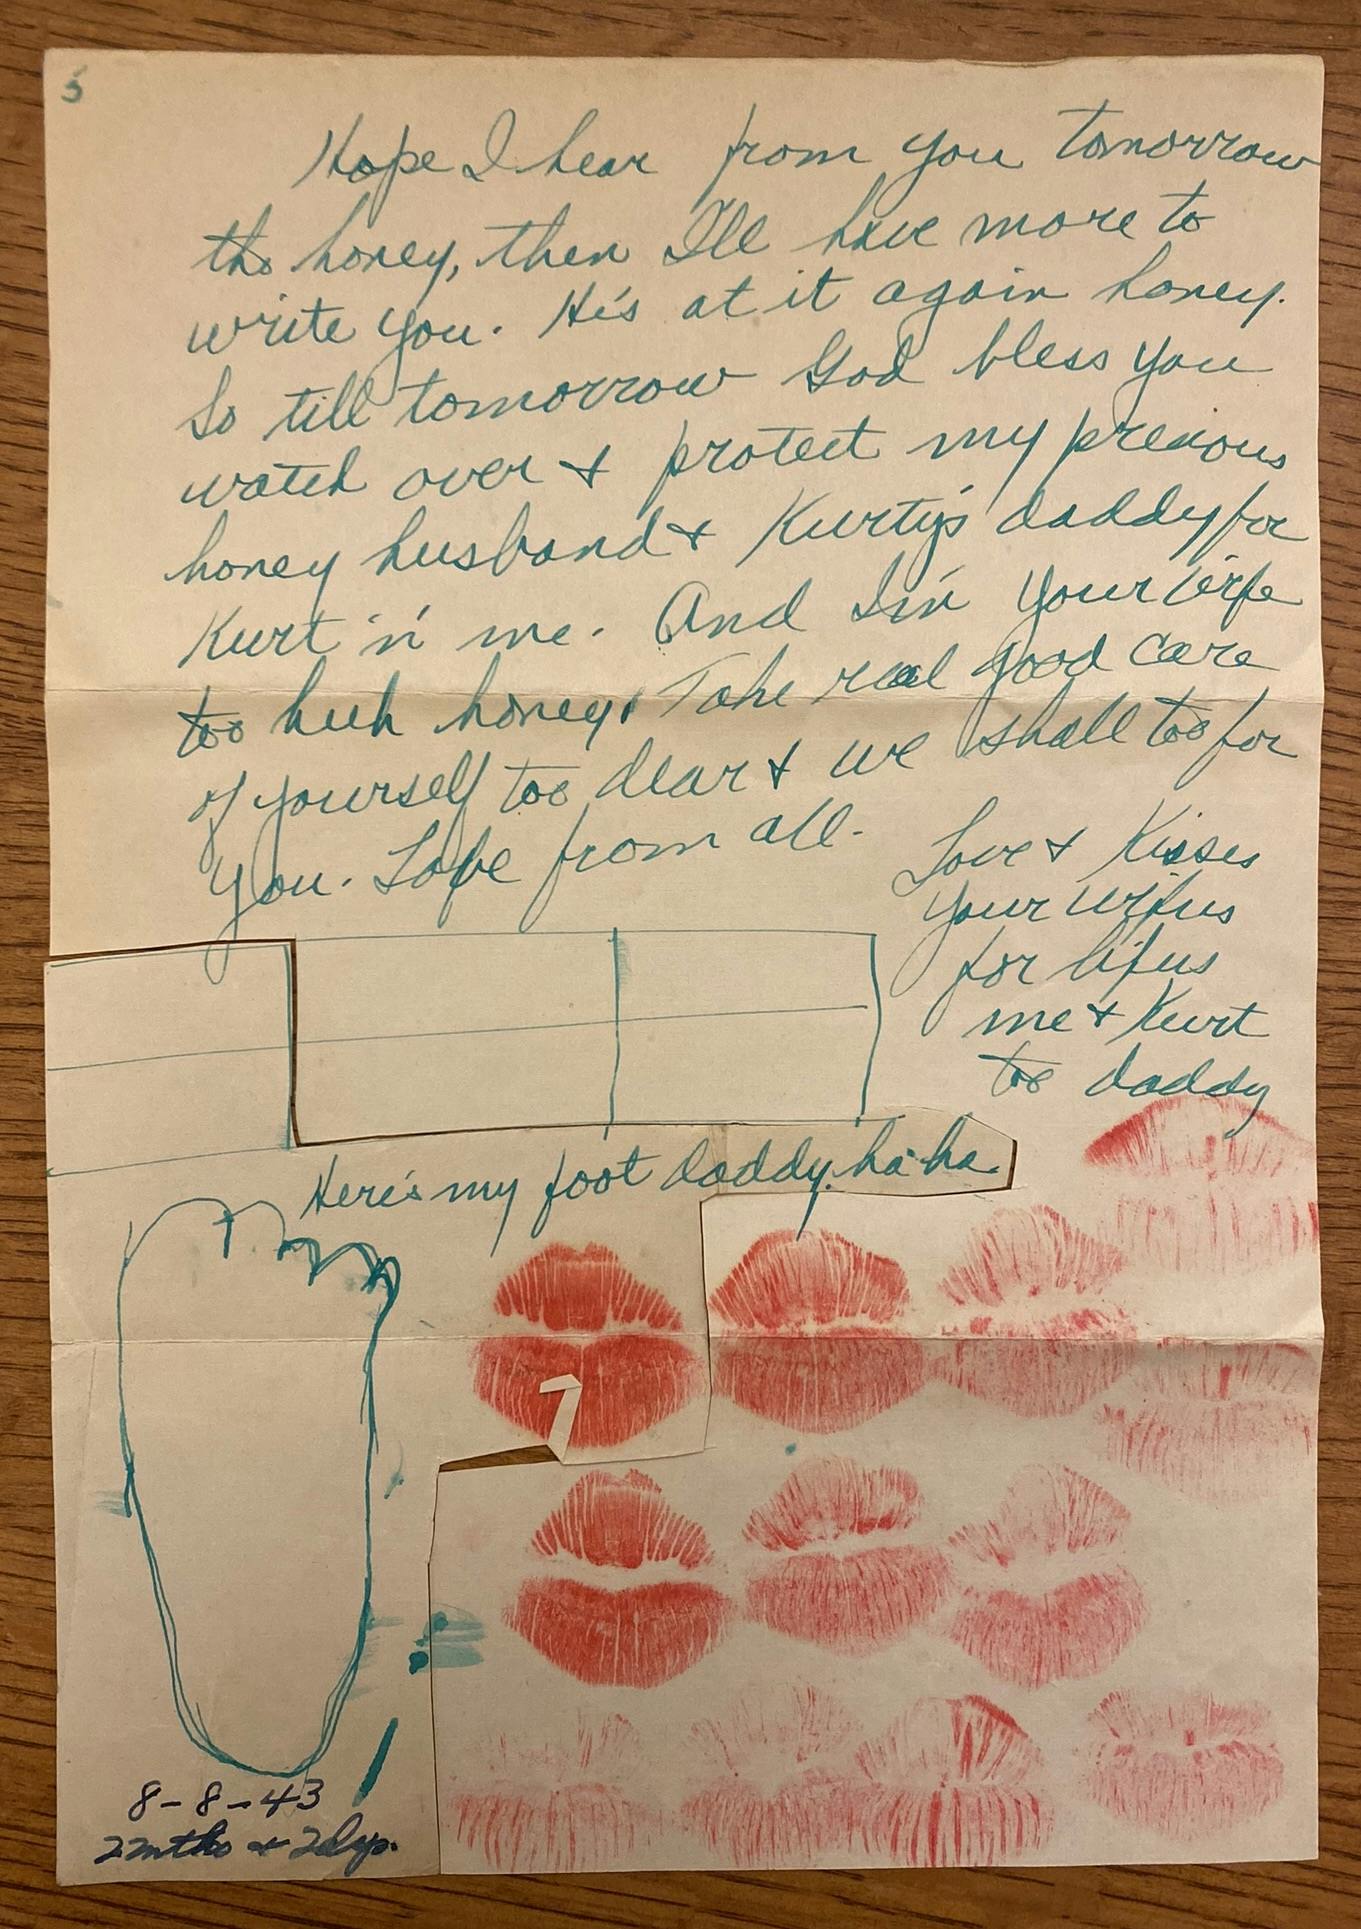 5
Hope I hear from you tomorrow
tho honey, then I'll have more to
write you. He's at it again honey.
So till tomorrow God bless you
watch over & protect my precious
honey husband & Kurty's daddy for
Kurt 'n' me. And I'm your wife
too huh honey. Take real good care
of yourself too dear & we shall too for
you. Love from all.
Love & Kisses
your wifus
for lifus
me & Kurt
to daddy
Here's my foot daddy. ha ha.
8-8-43
2 mths & 2 dys.